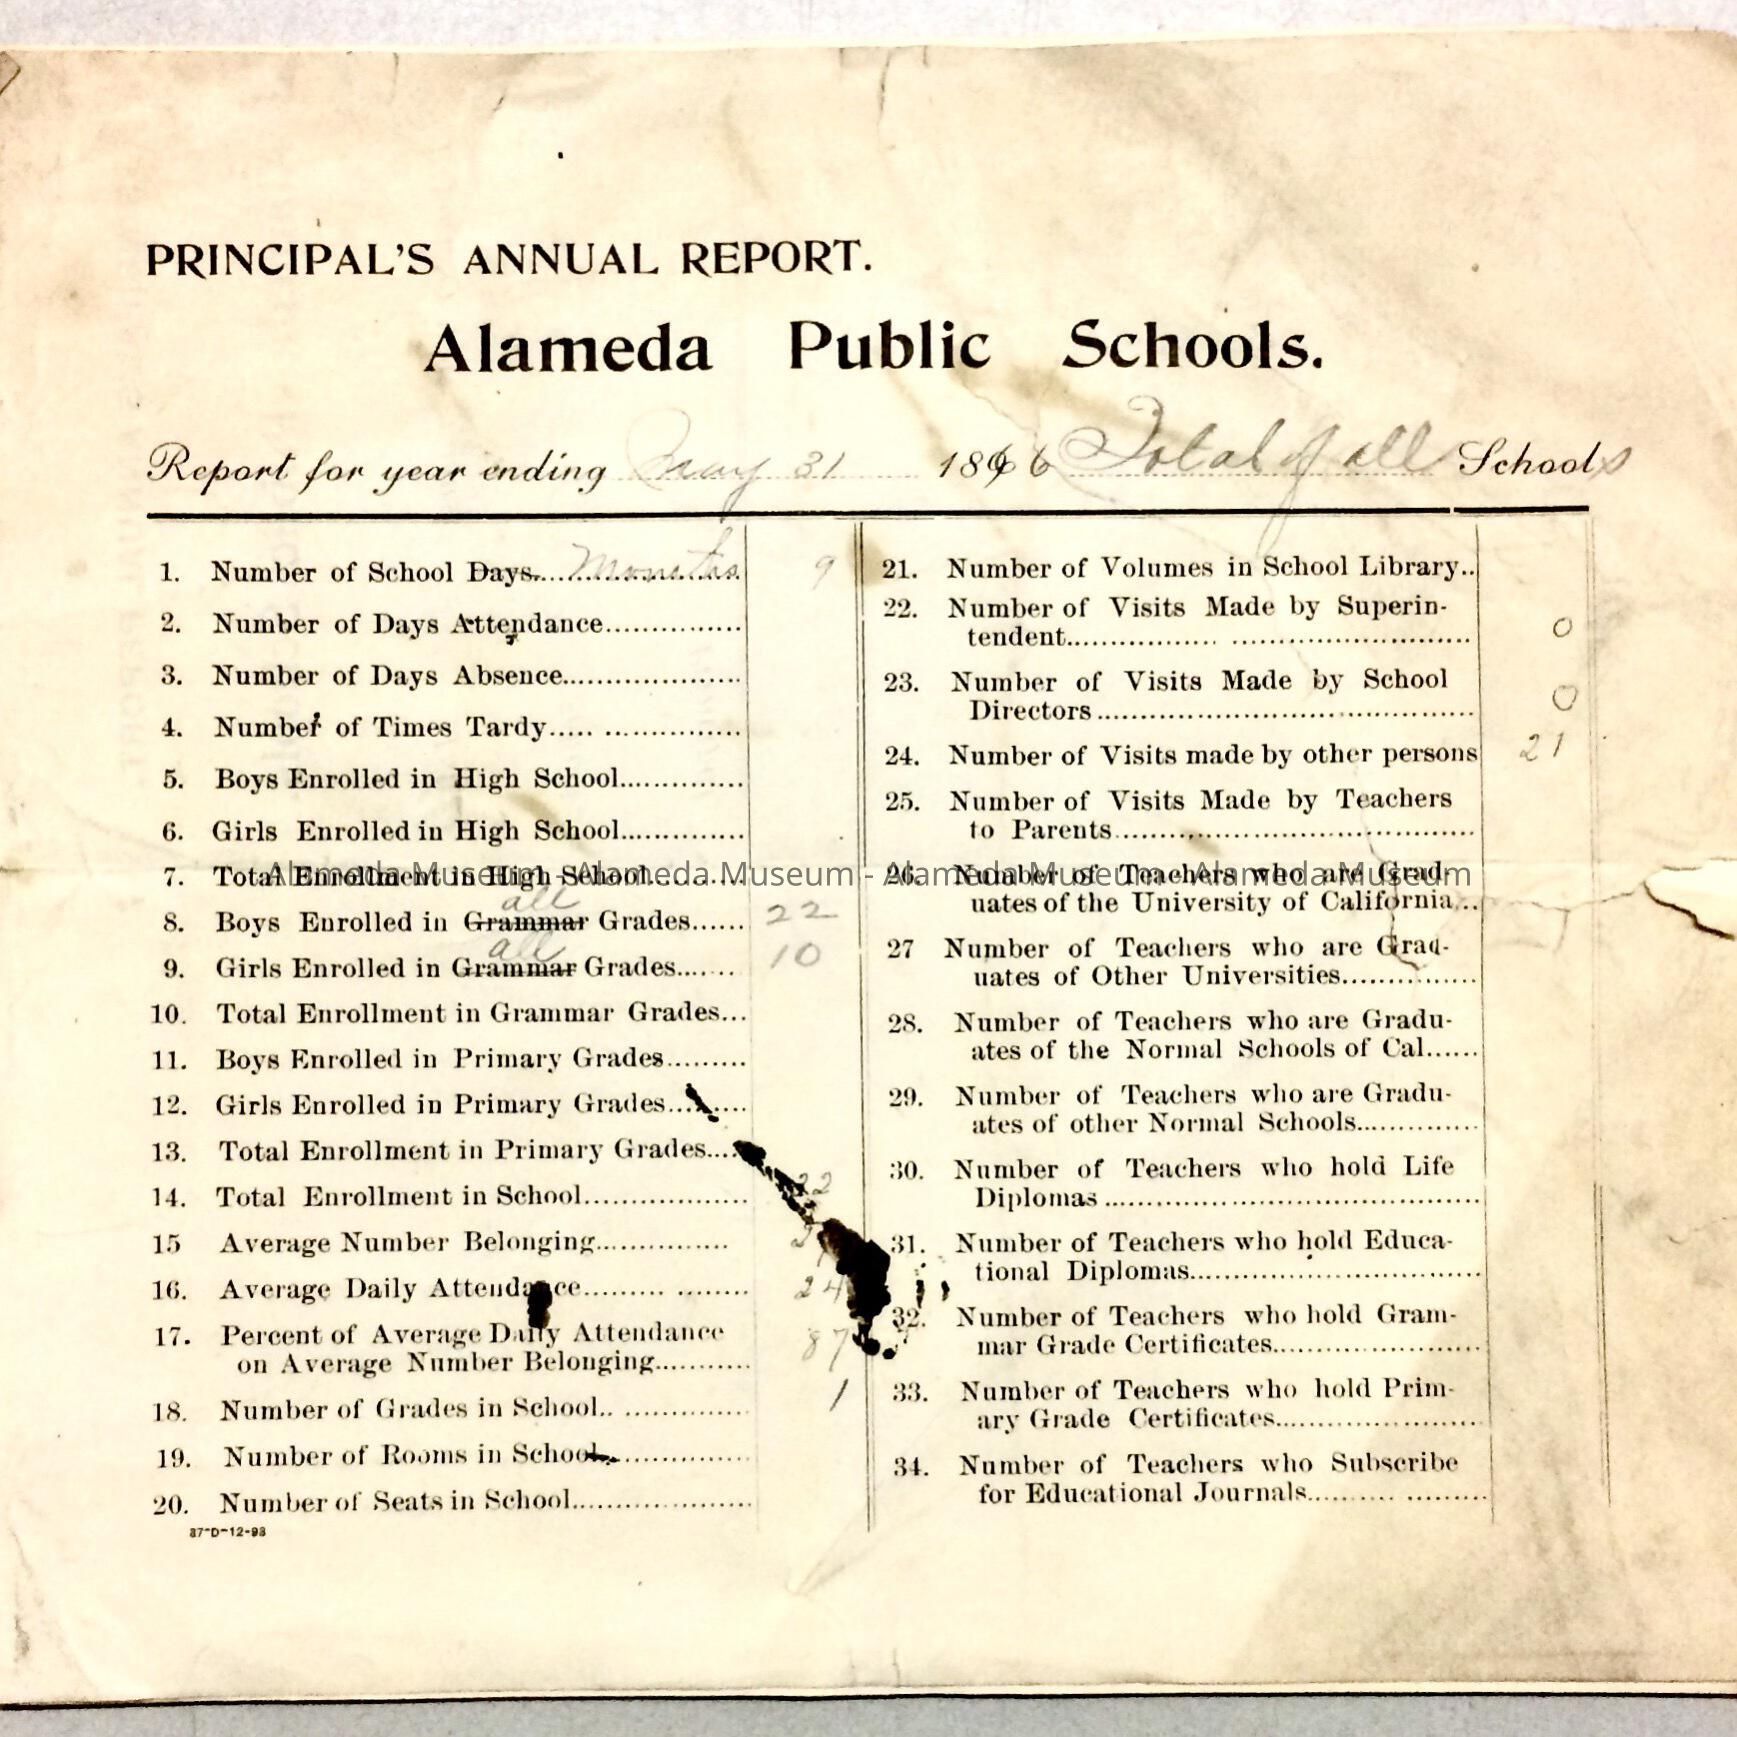 PRINCIPAL'S ANNUAL REPORT.
Alameda Public Schools.
Report for year ending May 31 1866 Total of all Schools
1. Number of School Days Months 9
2. Number of Days Attendance
3. Number of Days Absence
4. Number of Times Tardy
5. Boys Enrolled in High School
6. Girls Enrolled in High School
7. Total Enrollment in High School
all
8. Boys Enrolled in Grammar Grades 22
all
9. Girls Enrolled in Grammar Grades 10
10. Total Enrollment in Grammar Grades
11. Boys Enrolled in Primary Grades
12. Girls Enrolled in Primary Grades
13. Total Enrollment in Primary Grades
14. Total Enrollment in School
15 Average Number Belonging
16. Average Daily Attendance 24
17. Percent of Average Daily Attendance
on Average Number Belonging 87
18. Number of Grades in School 1
19. Number of Rooms in School
20. Number of Seats in School
37-D-12-93
21. Number of Volumes in School Library
22. Number of Visits Made by Superin-
tendent 0
23. Number of Visits Made by School
Directors 0
24. Number of Visits made by other persons 21
25. Number of Visits Made by Teachers
to Parents
26. Number of Teachers who are Grad-
uates of the University of California
27 Number of Teachers who are Grad-
uates of Other Universities
28. Number of Teachers who are Gradu-
ates of the Normal Schools of Cal
29. Number of Teachers who are Gradu-
ates of other Normal Schools
30. Number of Teachers who hold Life
Diplomas
31. Number of Teachers who hold Educa-
tional Diplomas
32. Number of Teachers who hold Gram-
mar Grade Certificates
33. Number of Teachers who hold Prim-
ary Grade Certificates
34. Number of Teachers who Subscribe
for Educational Journals
Alameda Museum - Alameda Museum - Alameda Museum - Alameda Museum